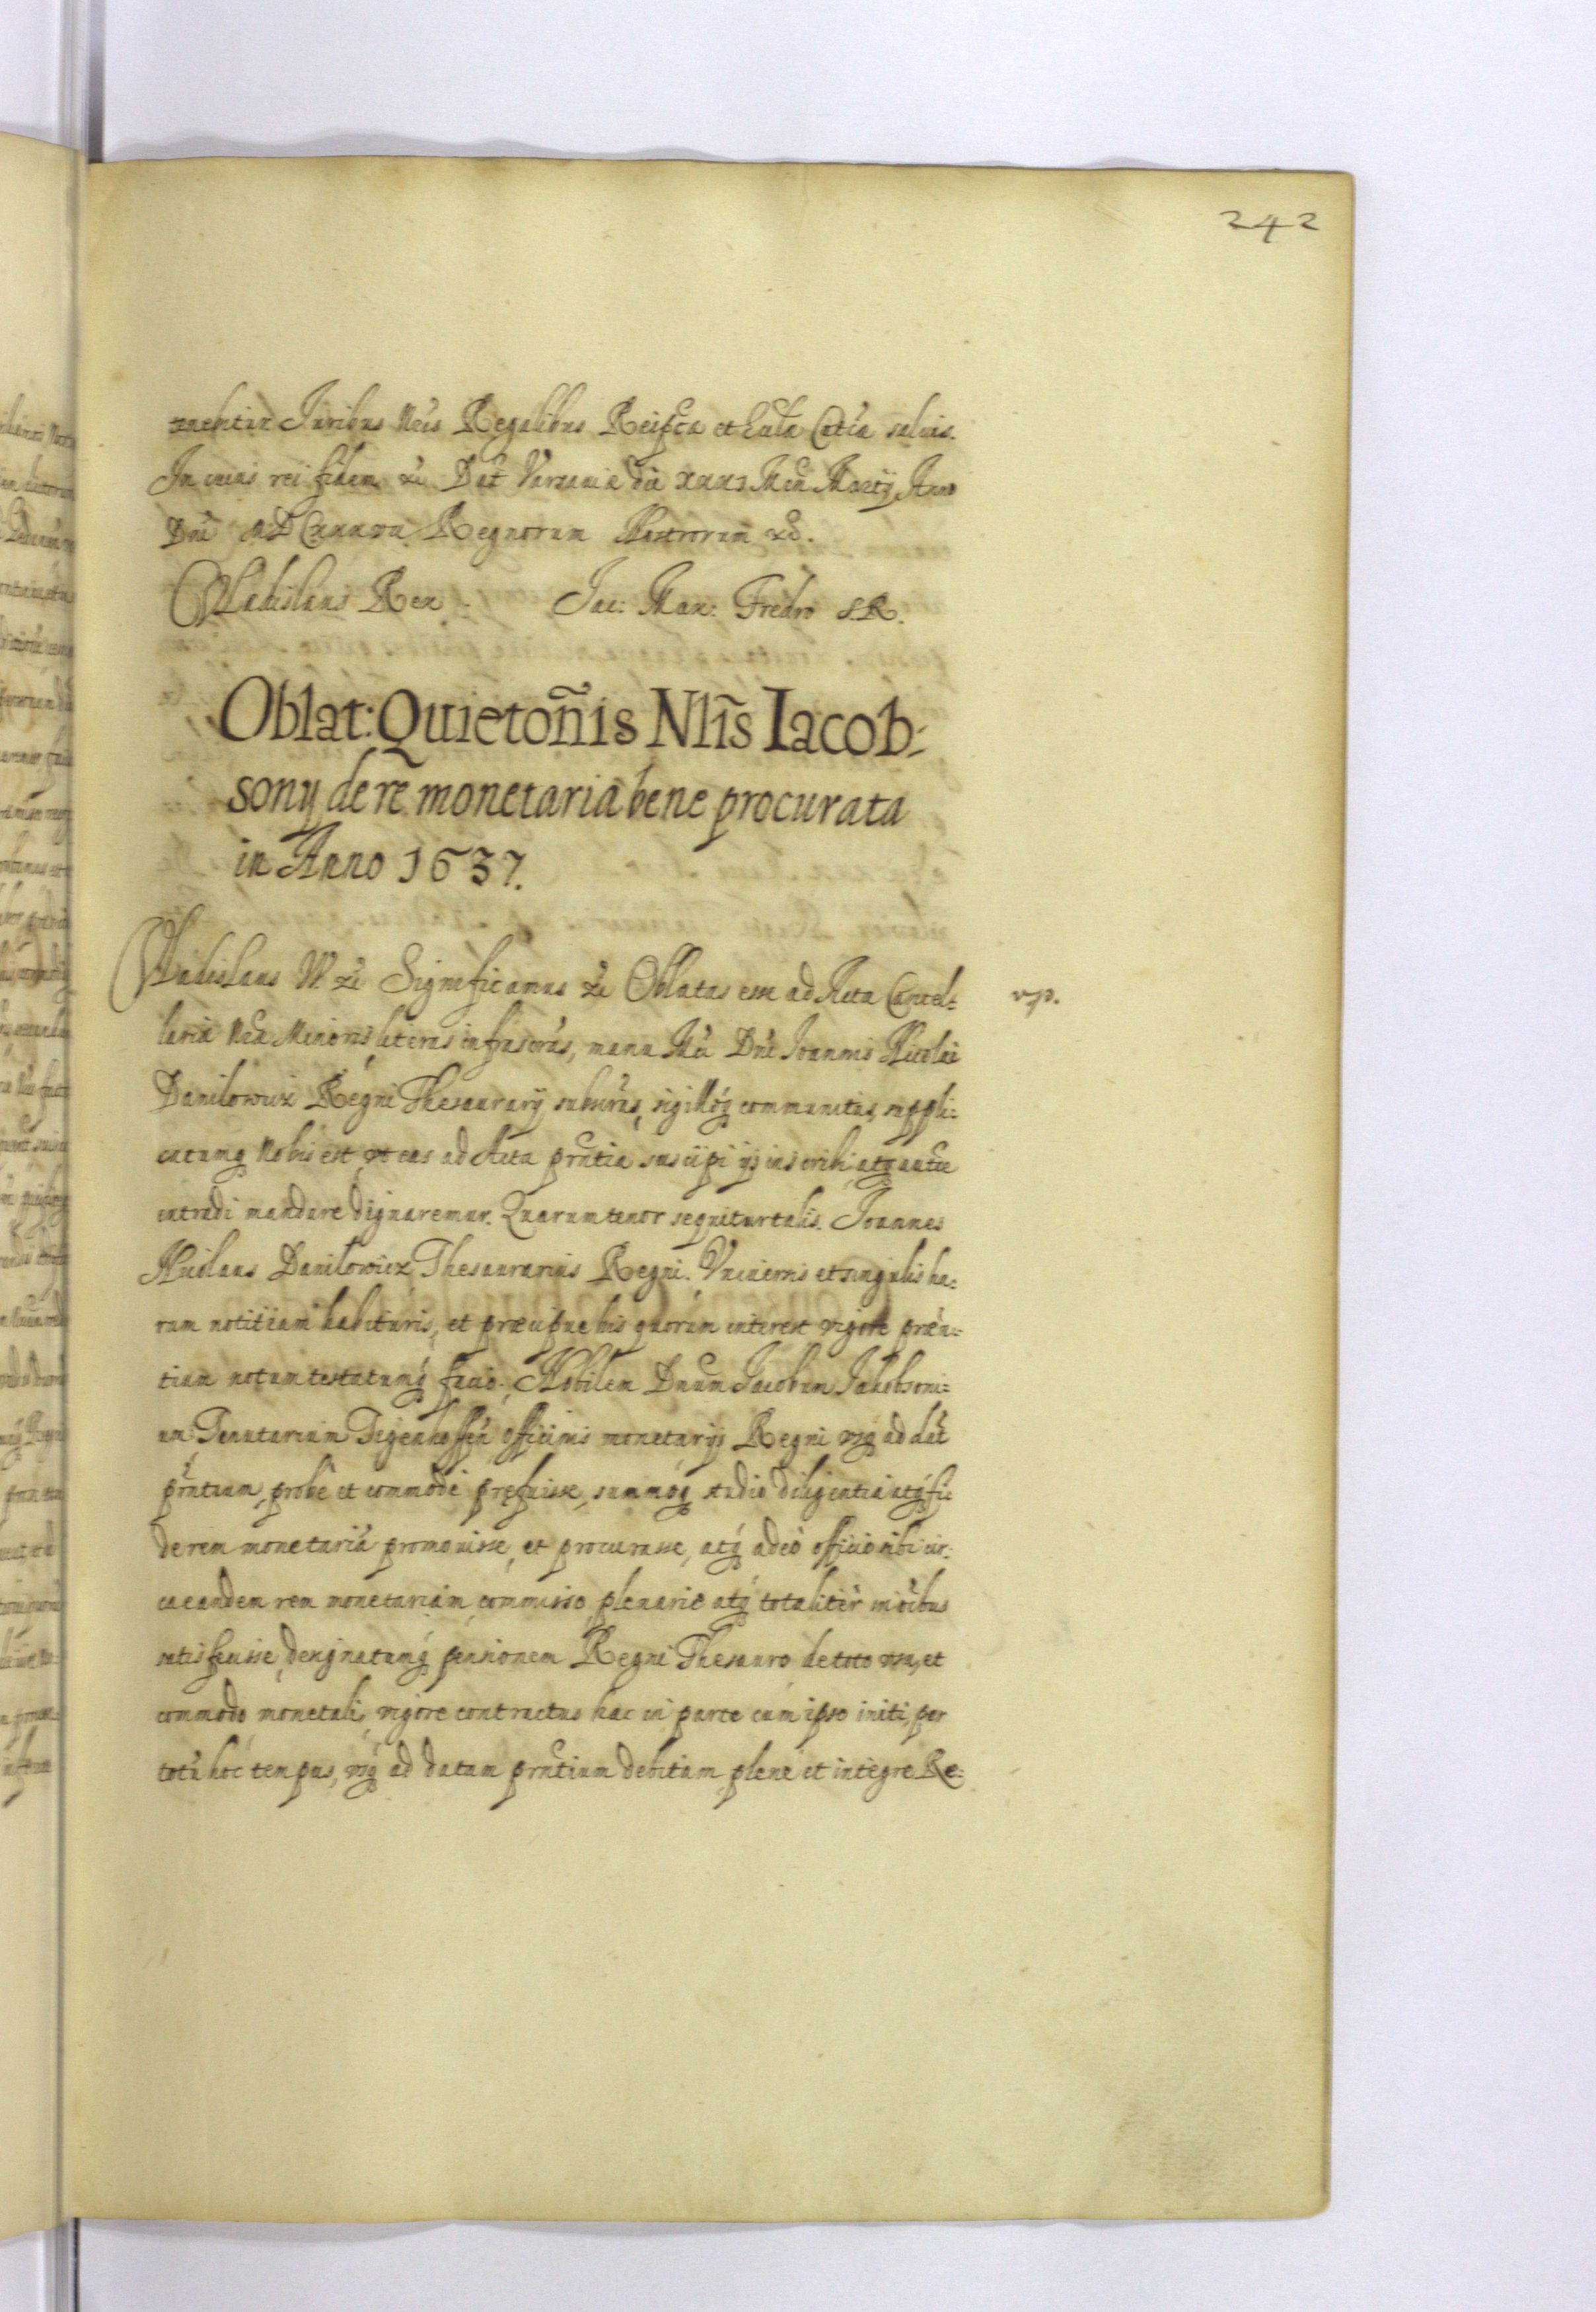 242
Juribus Nris Regalibus Reipcæ et Eccla Catca saluis.
In cuius rei fidem &c Dat Varsauiæ die XXXI Men Martij Anno
Dni MDCXXXVII. Regnorum Nostrorum &c.
Vladislaus Rex. Jac: Max: Fredro S.R.
Oblat: Quietoñis Nlĩs Iacob:
sony de re monetaria bene procurata
in Anno 1637.
Vladislaus IV. &c Significamus &c Oblatas esse ad Acta Cancel:
lariæ Nræ Minoris literas infrascras, manu Mci Dni Joannis Nicolai
Danilowicz Regni Thesaurarij subscras, sigilloq communitas, suppli:
catumq Nobis est, vt eas ad Acta prntia suscipi ijs inscribi, atq autce
extradi mandare dignaremur. Quarum tenor sequitur talis. Joannes
Nicolaus Danilowicz Thesaurarius Regni. Vniuersis et singulis ha:
rum notitiam habituris, et præcipue his quorum interest vigore præn:
tium notum testatumq facio. Nobilem Dnum Jacobum Jakobsoni:
um Tenutarium Tigenhoffen officinis monetarijs Regni vsq ad dat
prntium, probè et commodè præfuisse, summoq studio diligentia atq fi:
de rem monetariã promouisse, et procurasse, atq adeò officio sibi cir:
ca eandem rem monetariam commisso, plenariè atq totalitèr in oibus
satisfecisse, designatamq pensionem Regni Thesauro de toto vsu, et
commodo monetali, vigore contractus hac in parte cum ipso initi, per
totũ hoc tempus, vsq ad datam prntium debitam, plenè et integrè Re:
vp.